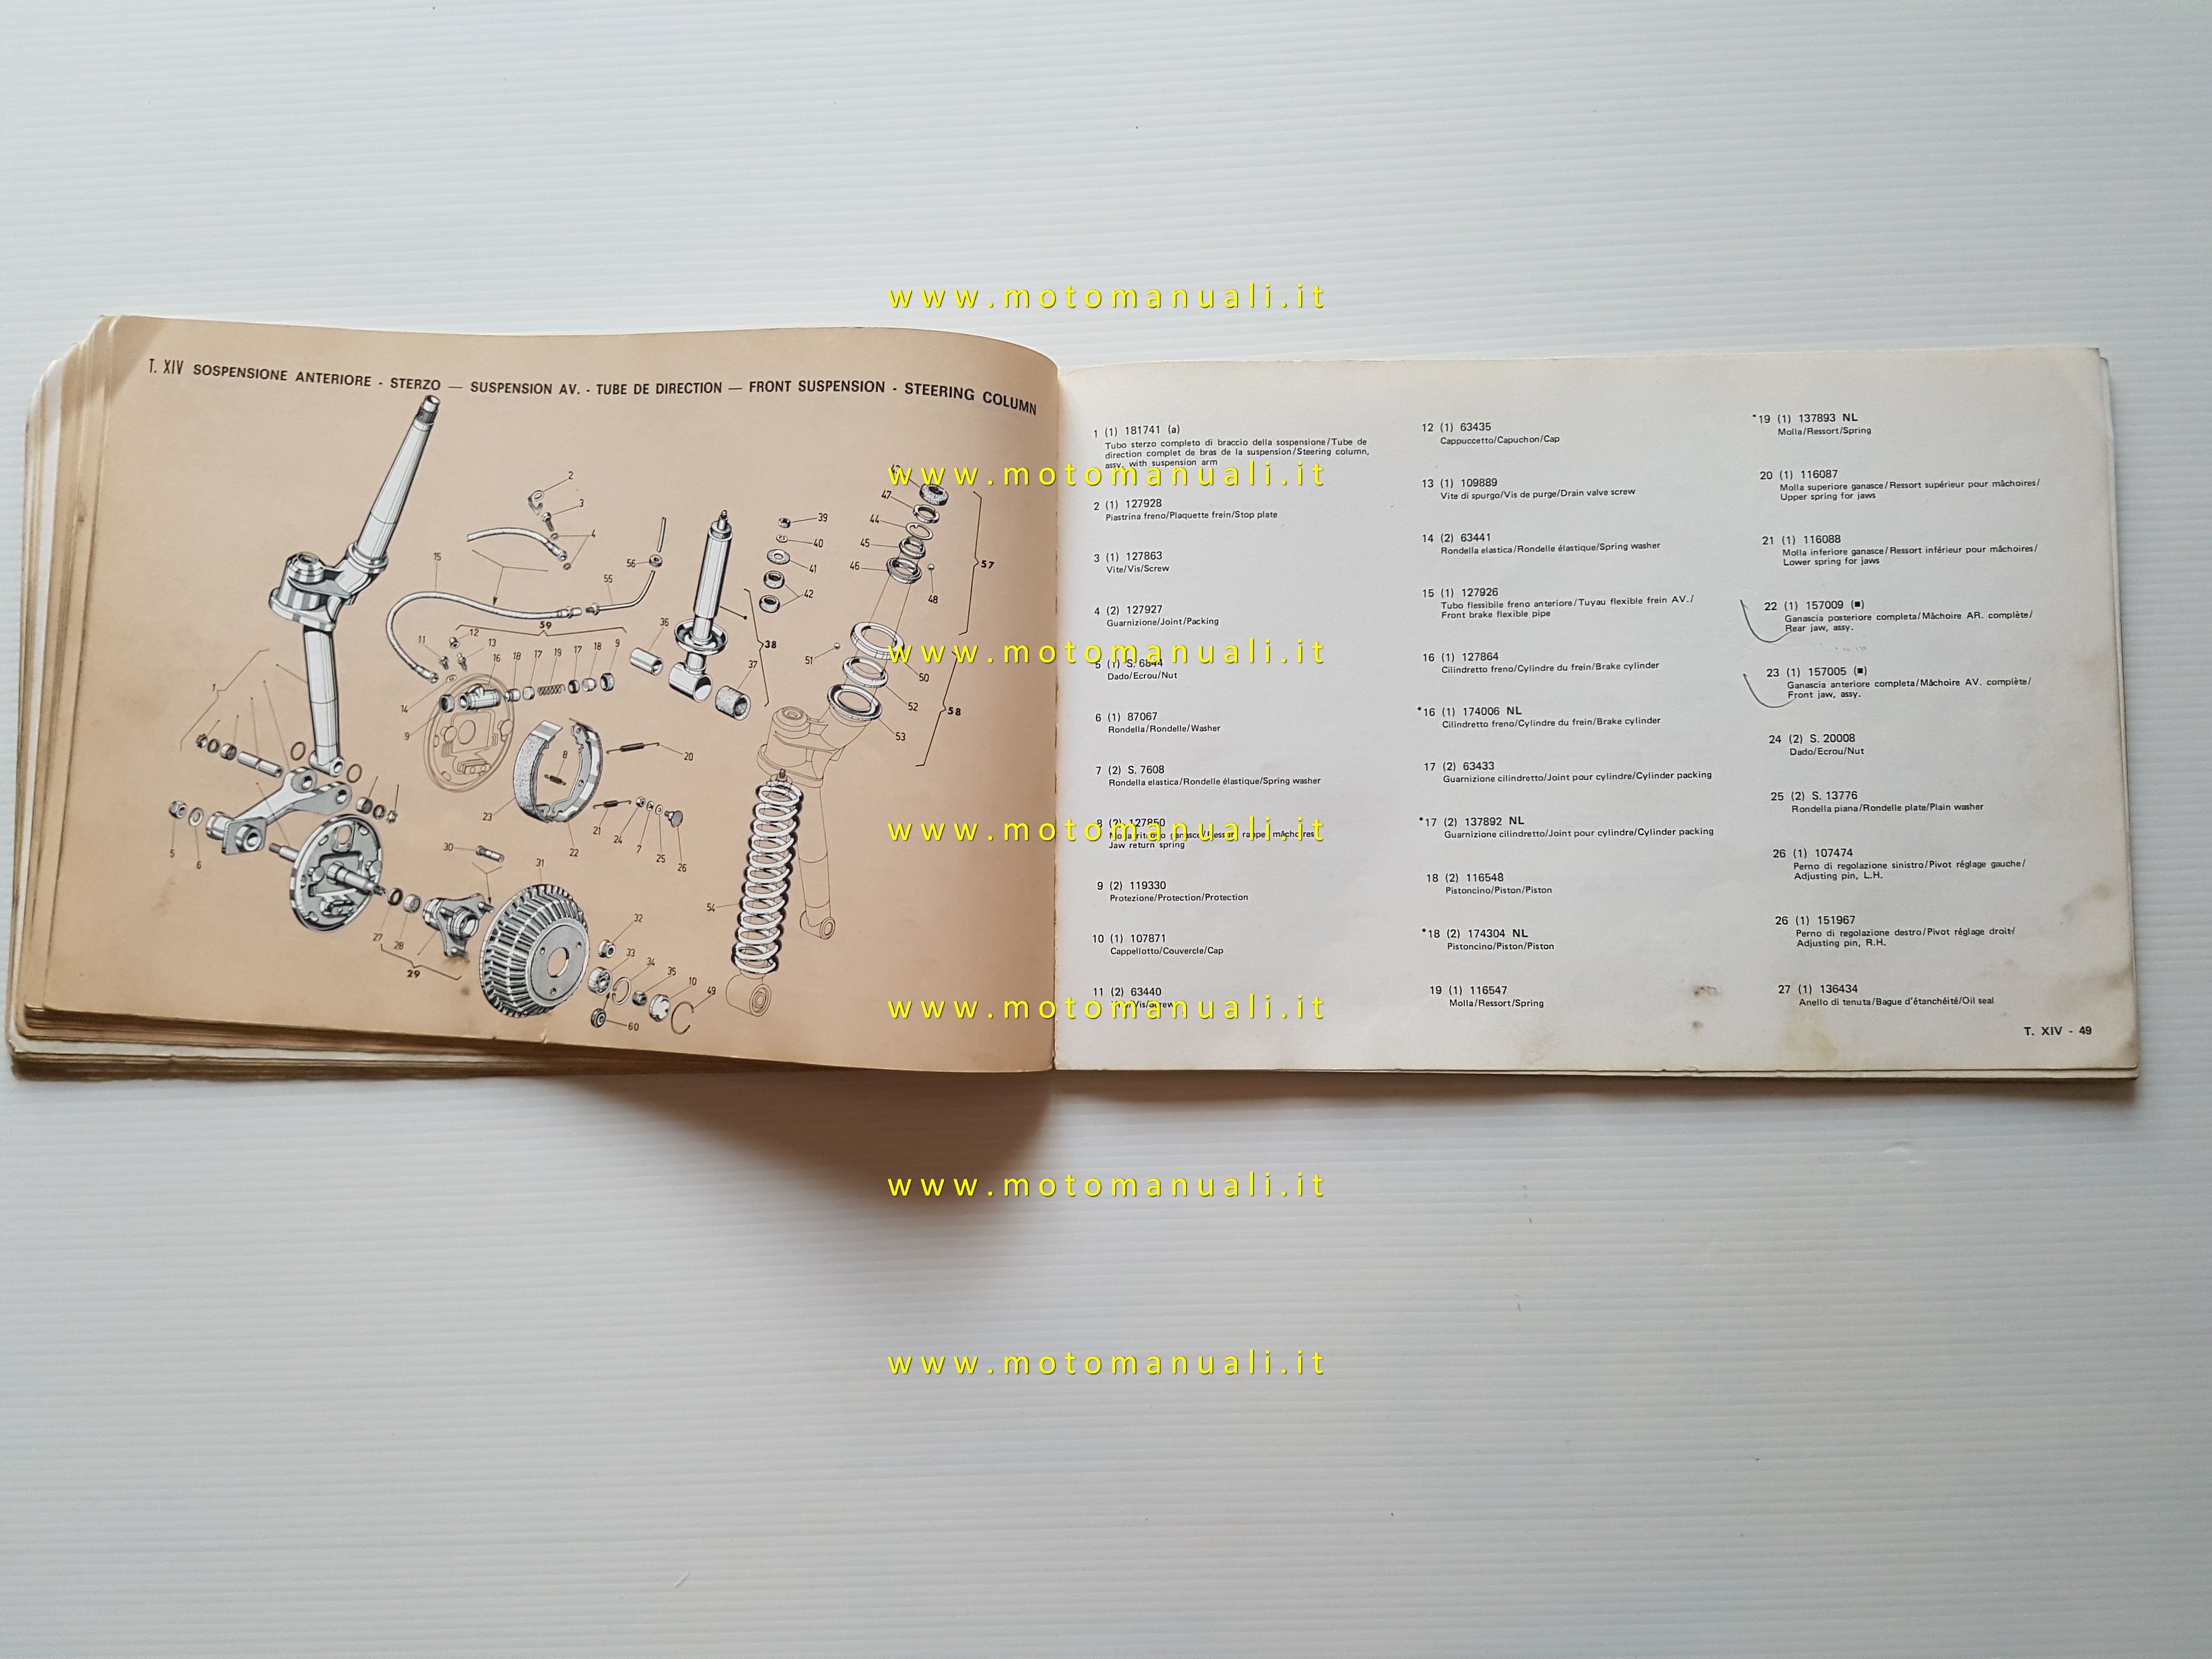 T. XIV SOSPENSIONE ANTERIORE - STERZO — SUSPENSION AV. - TUBE DE DIRECTION — FRONT SUSPENSION - STEERING COLUMN
2
3
4
15
55
56
11
12
13
59
16
18
17
19
17
18
9
36
14
9
1
39
40
41
42
38
37
47
44
45
46
48
57
51
50
52
58
53
8
20
23
22
21
24
7
25
26
5
6
30
31
27
28
29
32
33
34
35
10
49
60
54
1 (1) 181741 (a)
Tubo sterzo completo di braccio della sospensione/Tube de
direction complet de bras de la suspension/Steering column,
assy. with suspension arm
2 (1) 127928
Piastrina freno/Plaquette frein/Stop plate
3 (1) 127863
Vite/Vis/Screw
4 (2) 127927
Guarnizione/Joint/Packing
5 (1) S. 6844
Dado/Ecrou/Nut
6 (1) 87067
Rondella/Rondelle/Washer
7 (2) S. 7608
Rondella elastica/Rondelle élastique/Spring washer
8 (2) 127850
Jaw return spring
9 (2) 119330
Protezione/Protection/Protection
10 (1) 107871
Cappellotto/Couvercle/Cap
11 (2) 63440
12 (1) 63435
Cappuccetto/Capuchon/Cap
13 (1) 109889
Vite di spurgo/Vis de purge/Drain valve screw
14 (2) 63441
Rondella elastica/Rondelle élastique/Spring washer
15 (1) 127926
Tubo flessibile freno anteriore/Tuyau flexible frein AV./
Front brake flexible pipe
16 (1) 127864
Cilindretto freno/Cylindre du frein/Brake cylinder
*16 (1) 174006 NL
Cilindretto freno/Cylindre du frein/Brake cylinder
17 (2) 63433
Guarnizione cilindretto/Joint pour cylindre/Cylinder packing
*17 (2) 137892 NL
Guarnizione cilindretto/Joint pour cylindre/Cylinder packing
18 (2) 116548
Pistoncino/Piston/Piston
*18 (2) 174304 NL
Pistoncino/Piston/Piston
19 (1) 116547
Molla/Ressort/Spring
*19 (1) 137893 NL
Molla/Ressort/Spring
20 (1) 116087
Molla superiore ganasce/Ressort supérieur pour mâchoires/
Upper spring for jaws
21 (1) 116088
Molla inferiore ganasce/Ressort inférieur pour mâchoires/
Lower spring for jaws
22 (1) 157009 (■)
Ganascia posteriore completa/Mâchoire AR. complète/
Rear jaw, assy.
23 (1) 157005 (■)
Ganascia anteriore completa/Mâchoire AV. complète/
Front jaw, assy.
24 (2) S. 20008
Dado/Ecrou/Nut
25 (2) S. 13776
Rondella piana/Rondelle plate/Plain washer
26 (1) 107474
Perno di regolazione sinistro/Pivot réglage gauche/
Adjusting pin, L.H.
26 (1) 151967
Perno di regolazione destro/Pivot réglage droit/
Adjusting pin, R.H.
27 (1) 136434
Anello di tenuta/Bague d'étanchéité/Oil seal
T. XIV - 49
www.motomanuali.it
www.motomanuali.it
www.motomanuali.it
www.motomanuali.it
www.motomanuali.it
www.motomanuali.it
www.motomanuali.it